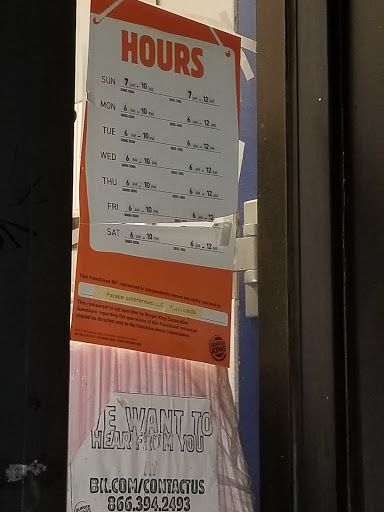 HOURS
SUN 7 AM - 10 PM 7 AM - 12 AM
MON 6 AM - 10 PM 6 AM - 12 AM
TUE 6 AM - 10 PM 6 AM - 12 AM
WED 6 AM - 10 PM 6 AM - 12 AM
THU 6 AM - 10 PM 6 AM - 12 AM
FRI 6 AM - 10 PM 6 AM - 12
SAT 6 AM - 10 PM 6 AM - 12 AM
This franchised BK restaurant is independently owned and operated by
enterprises LLC
This restaurant is not operated by Burger King Corporation.
Questions regarding the operations of this franchised restaurant
should be directed only to the franchise owner listed above.
BURGER
KING
WE WANT TO
HEAR FROM YOU
BK.COM/CONTACTUS
866.394.2493